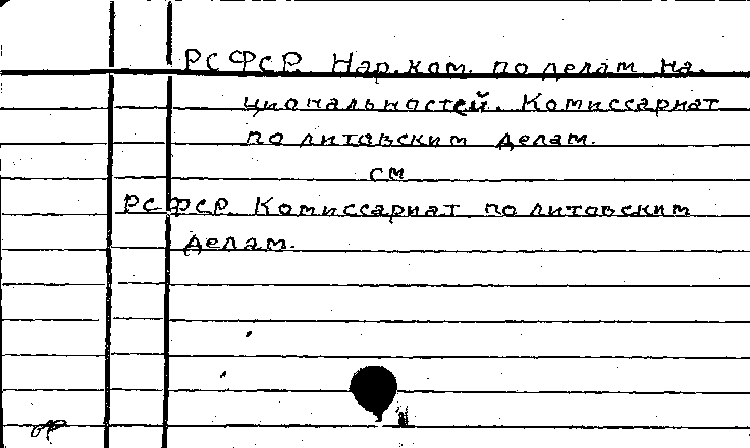 РСФСР. Нар. ком. по делам на-
циональностей. Комиссариат
по литовским делам.
см
РСФСР. Комиссариат по литовским
делам.